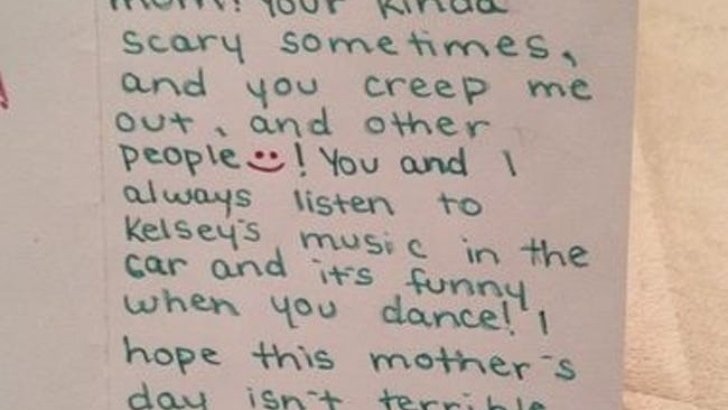 mom! Your kinda
scary sometimes,
and you creep me
out, and other
people! You and I
always listen to
Kelsey's music in the
car and it's funny
when you dance! I
hope this mother's
day isn't terrible